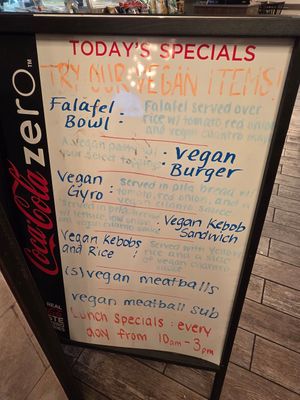 TODAY'S SPECIALS
TRY OUR VEGAN ITEMS!
Falafel Bowl : Falafel served over
rice w/ tomato, red onion,
and vegan cilantro
A vegan patty w/
your select toppings : vegan
Burger
Vegan
Gyro : Served in pita bread w/
tomato, red onion, and
vegan cilantro sauce
Served in pita bread
w/ lettuce, red onion,
vegan cilantro sauce : Vegan Kebob
Sandwich
Vegan Kebobs
and Rice : Served with yellow
rice and a side
of vegan cilantro
sauce
(5) vegan meatballs
vegan meatball sub
Lunch Specials : every
day from 10am - 3pm
Coca-Cola zero
REAL